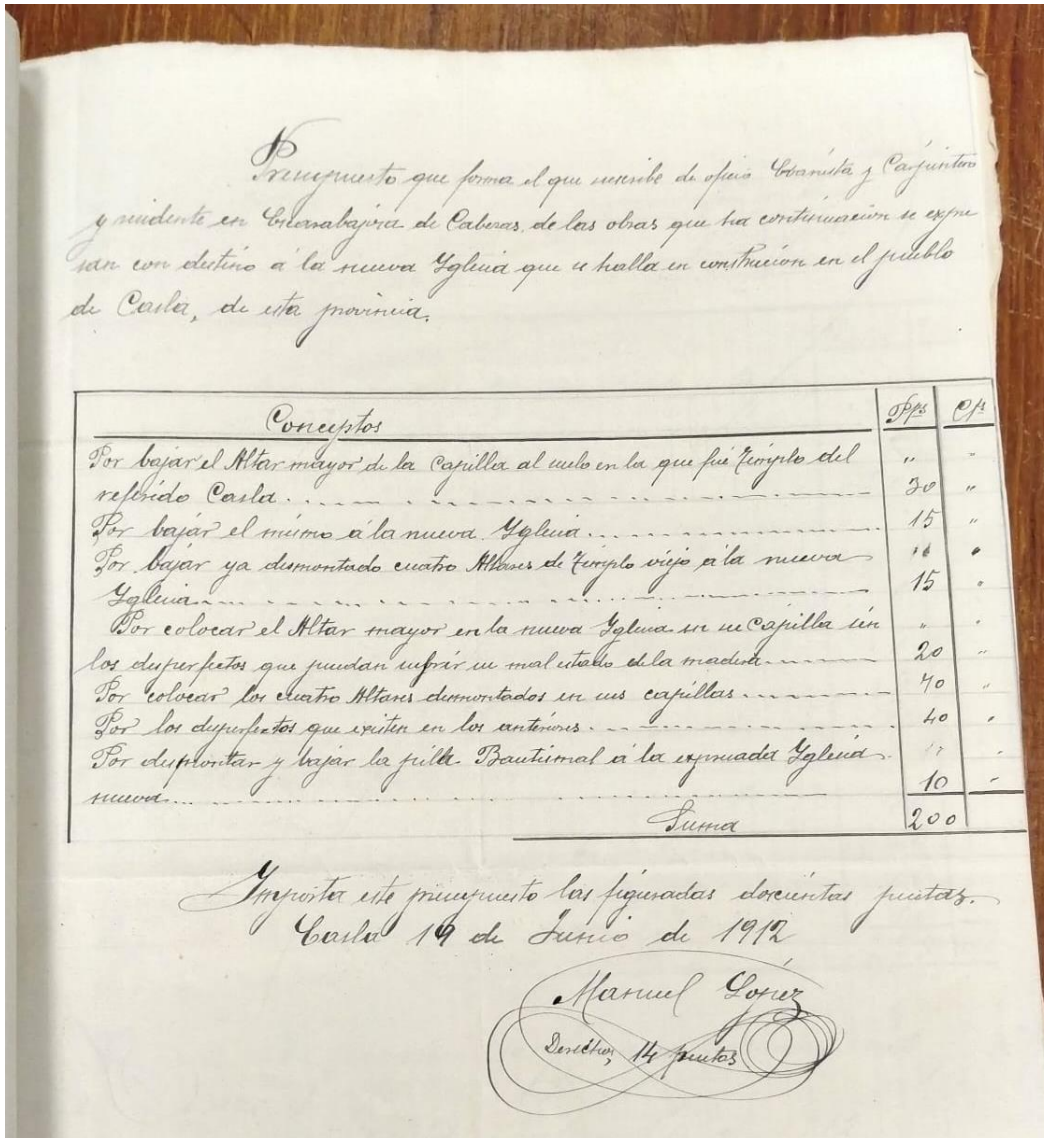 Presupuesto que forma el que suscribe de oficio Ebanista y Carpintero
y residente en Encarabajosa de Cabezas, de las obras que ha continuación se expre
san con destino á la nueva Yglesia que se halla en construción en el pueblo
de Casla, de esta provincia.
Conceptos Pts Cts
Por bajar el Altar mayor de la Capilla al suelo en la que fué Templo del " "
referido Casla 30 "
Por bajar el mismo á la nueva Yglesia 15 "
Por bajar ya desmontado cuatro Altares de Templo viejo á la nueva " "
Yglesia 15 "
Por colocar el Altar mayor en la nueva Yglesia en su Capilla sin " "
los desperfectos que puedan sufrir su mal estado de la madera 20 "
Por colocar los cuatro Altares desmontados en sus capillas 70 "
Por los desperfectos que existen en los anteriores 40 "
Por desmontar y bajar la pila Bautismal á la expresada Yglesia " "
nueva 10 "
Suma 200
Importa este presupuesto las figuradas doscientas pesetas.
Casla 19 de Junio de 1912
Manuel López
Derechos, 14 pesetas